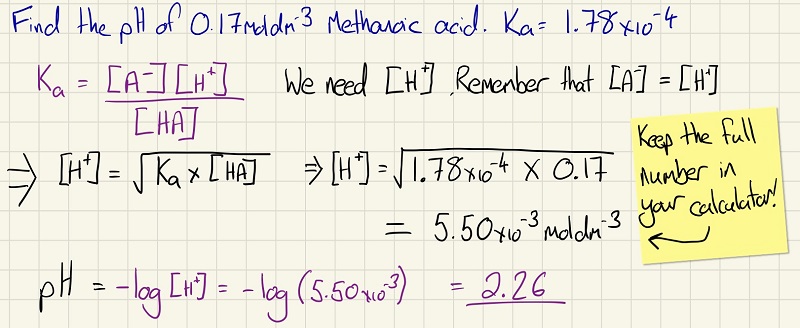 Find the pH of 0.17moldm⁻³ Methanoic acid. Ka = 1.78×10⁻⁴
Ka = [A⁻][H⁺] / [HA]
We need [H⁺]. Remember that [A⁻] = [H⁺]
⇒ [H⁺] = √(Ka × [HA]) ⇒ [H⁺] = √(1.78×10⁻⁴ × 0.17)
= 5.50×10⁻³ moldm⁻³
Keep the full
number in
your calculator!
pH = -log[H⁺] = -log(5.50×10⁻³) = 2.26